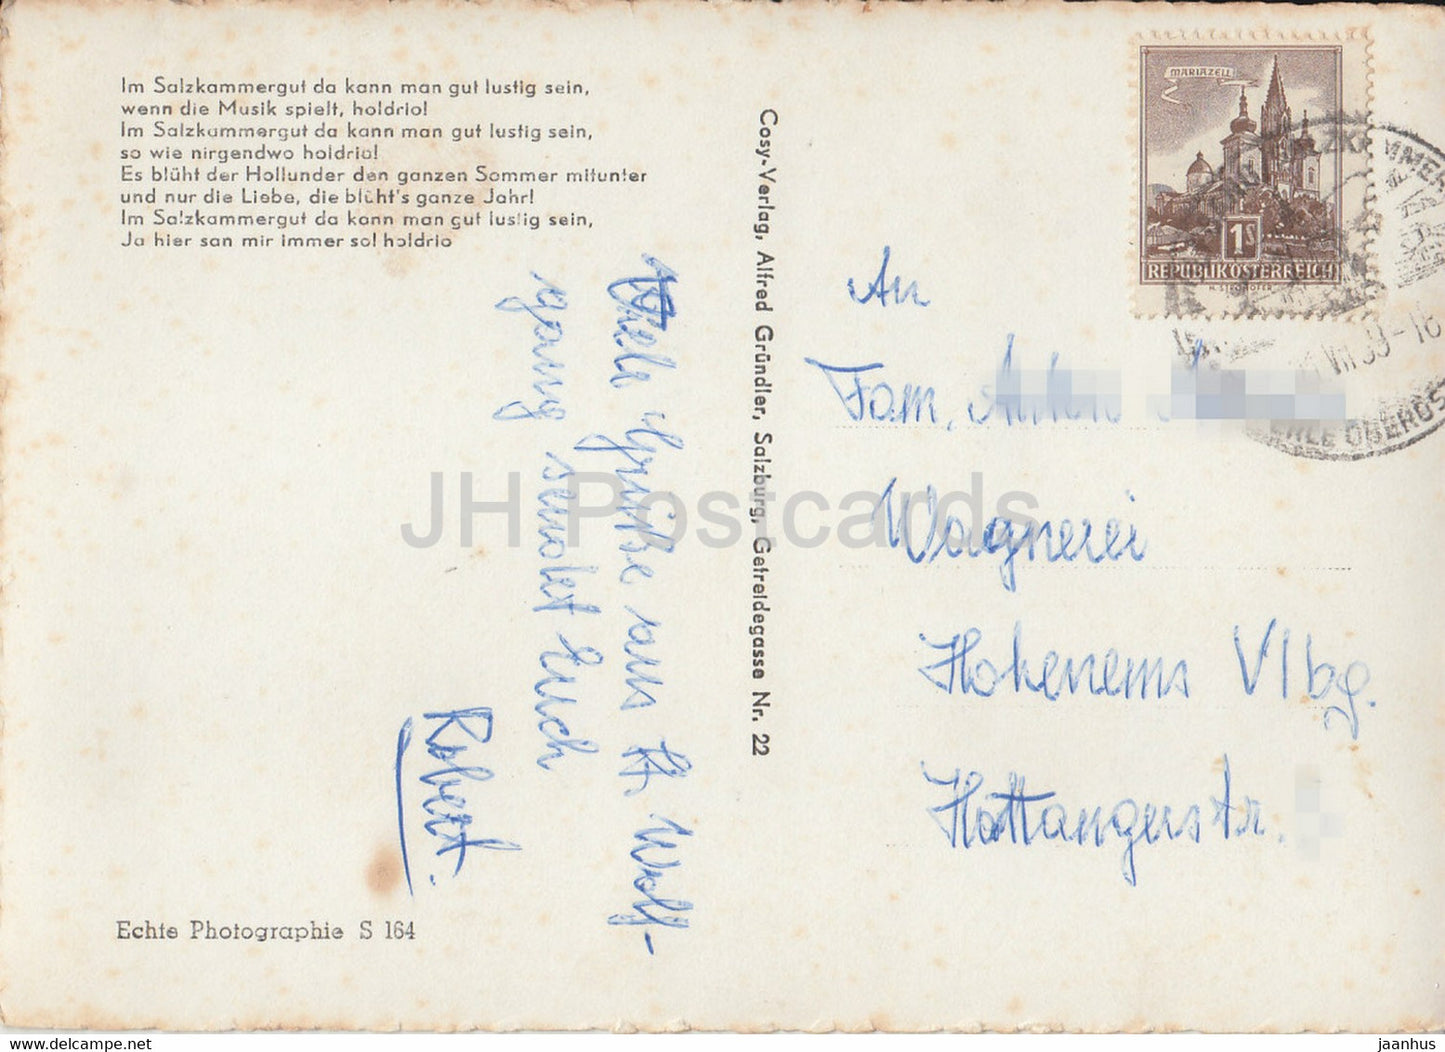 Im Salzkammergut da kann man gut lustig sein,
wenn die Musik spielt, holdrio!
Im Salzkammergut da kann man gut lustig sein,
so wie nirgendwo holdrio!
Es blüht der Hollunder den ganzen Sommer mitunter
und nur die Liebe, die blüht's ganze Jahr!
Im Salzkammergut da kann man gut lustig sein,
Ja hier san mir immer so! holdrio
Viele Grüße aus St. Wolf-
gang sendet Euch
Robert.
Echte Photographie S 164
Cosy-Verlag, Alfred Gründler, Salzburg, Getreidegasse Nr. 22
MARIAZELL
1S
REPUBLIK ÖSTERREICH
An
Fam.
Wagnerei
Hohenems Vlbg.
Hattangerstr.
JH Postcards
www.delcampe.net
jaanhus